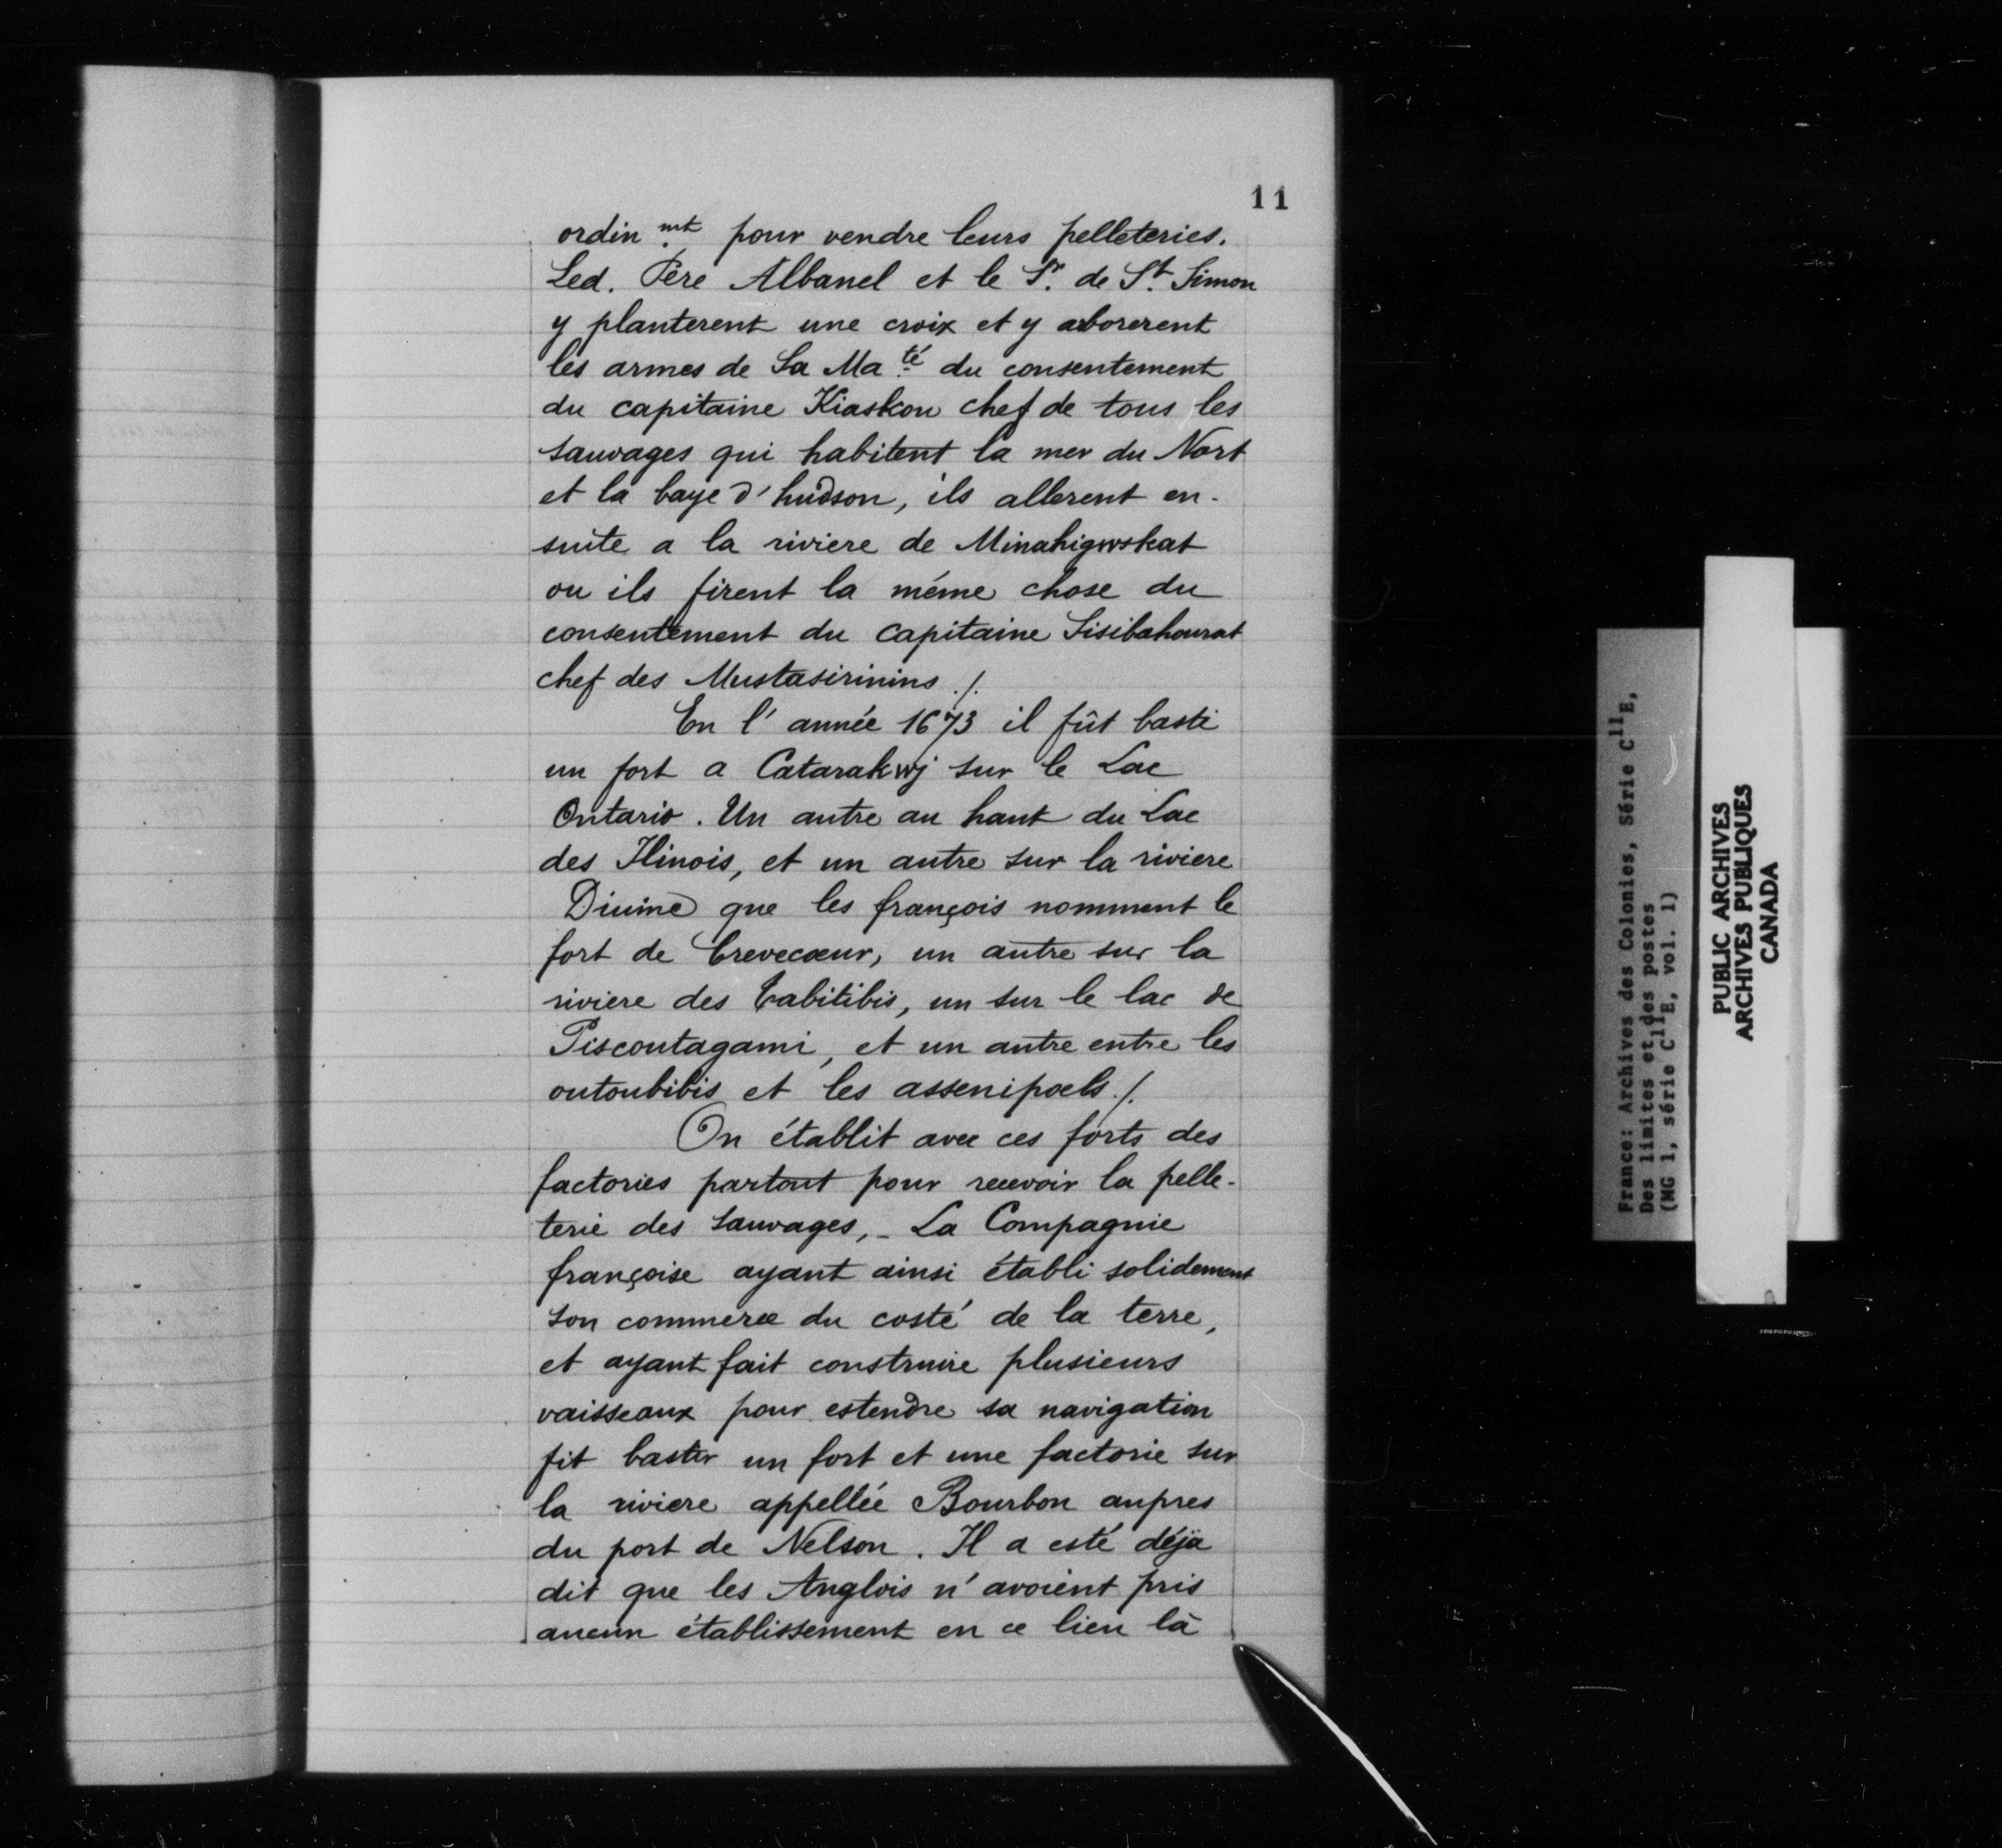 11
ordin.mt pour vendre leurs pelleteries.
Led. Père Albanel et le Sr. de St. Simon
y planterent une croix et y arborerent
les armes de Sa Ma.té du consentement
du capitaine Kiaskou chef de tous les
sauvages qui habitent la mer du Nort
et la baye d'hudson, ils allerent en-
suite a la riviere de Minahigwskat
ou ils firent la même chose du
consentement du capitaine Sisibahourat
chef des Mustasirinins ./.
En l'année 1673 il fût basti
un fort a Catarakwj sur le Lac
Ontario. Un autre au haut du Lac
des Ilinois, et un autre sur la riviere
Diuine que les françois nomment le
fort de Crevecœur, un autre sur la
riviere des tabitibis, un sur le lac de
Piscoutagami, et un autre entre les
outoubibis et les assenipoels ./.
On établit avec ces forts des
factories partout pour recevoir la pelle-
terie des sauvages, - La Compagnie
françoise ayant ainsi établi solidement
son commerce du costé de la terre,
et ayant fait construire plusieurs
vaisseaux pour estendre sa navigation
fit bastir un fort et une factorie sur
la riviere appellée Bourbon aupres
du port de Nelson. Il a esté déjà
dit que les Anglois n'avoient pris
aucun établissement en ce lieu là
France: Archives des Colonies, Série C11E,
Des limites et des postes
(MG 1, série C11E, vol. 1)
PUBLIC ARCHIVES
ARCHIVES PUBLIQUES
CANADA